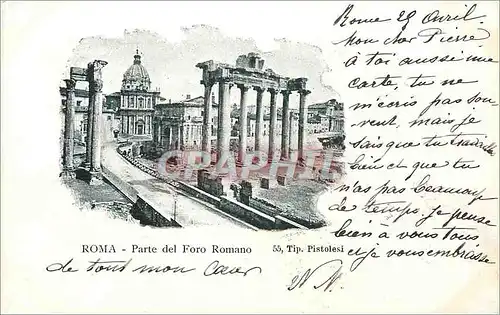 Rome 29 Avril.
Mon cher Pierre
à toi aussi une
carte, tu ne
m'écris pas sou-
vent, mais je
sais que tu travaille
bien et que tu
n'as pas beaucoup
de temps, je pense
bien à vous tous
et je vous embrasse
de tout mon cœur
CARTEPHILIA
ROMA - Parte del Foro Romano
55, Tip. Pistolesi